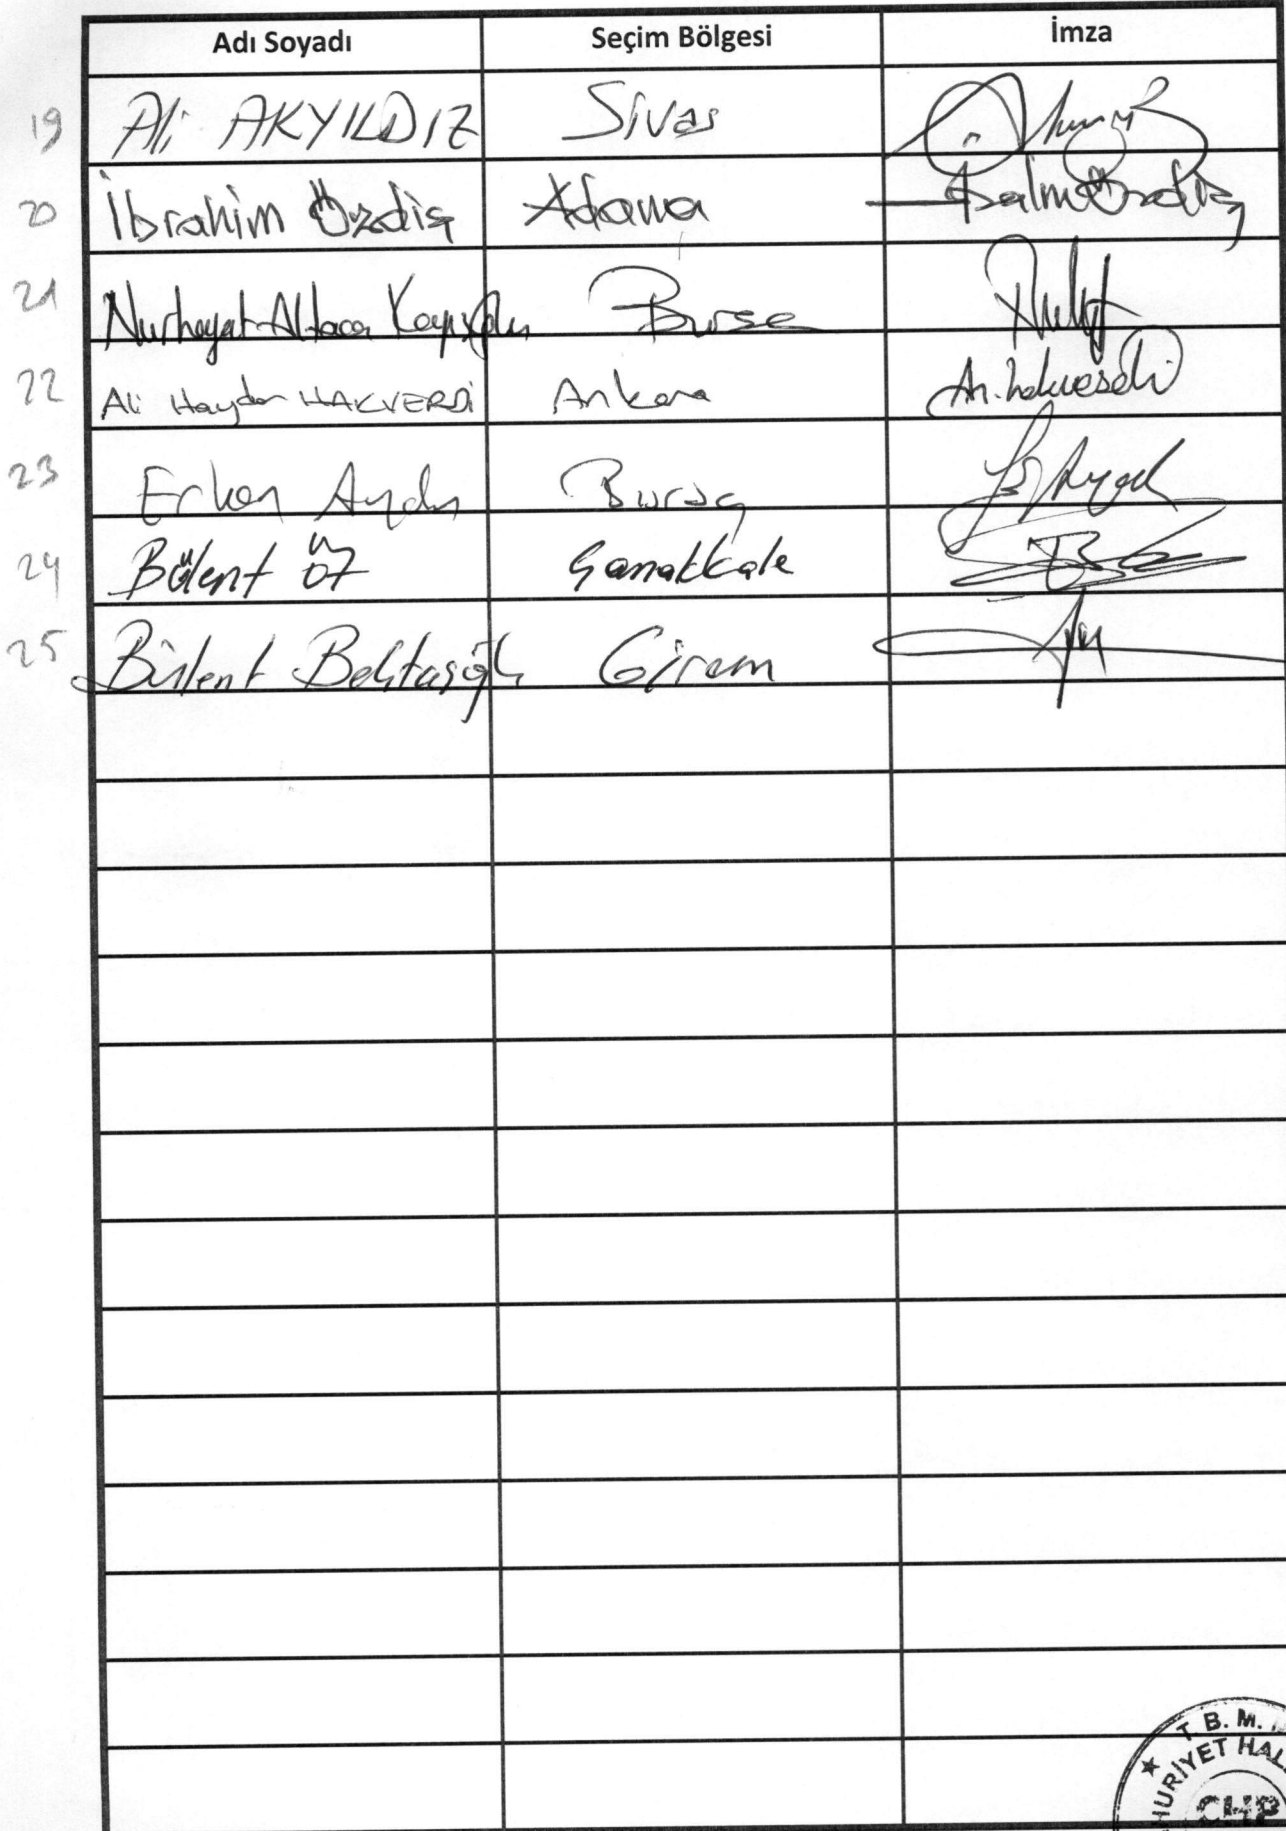 Adı Soyadı Seçim Bölgesi İmza
19 Ali AKYILDIZ Sivas
20 İbrahim Özdiş Adana
21 Nurhayat Altaca Kayışoğlu Bursa
22 Ali Haydar HAKVERDİ Ankara
23 Erkan Aydın Bursa
24 Bülent Öz Çanakkale
25 Bülent Bektaşoğlu Giresun
T. B. M. M.
CUMHURİYET HALK
CHP